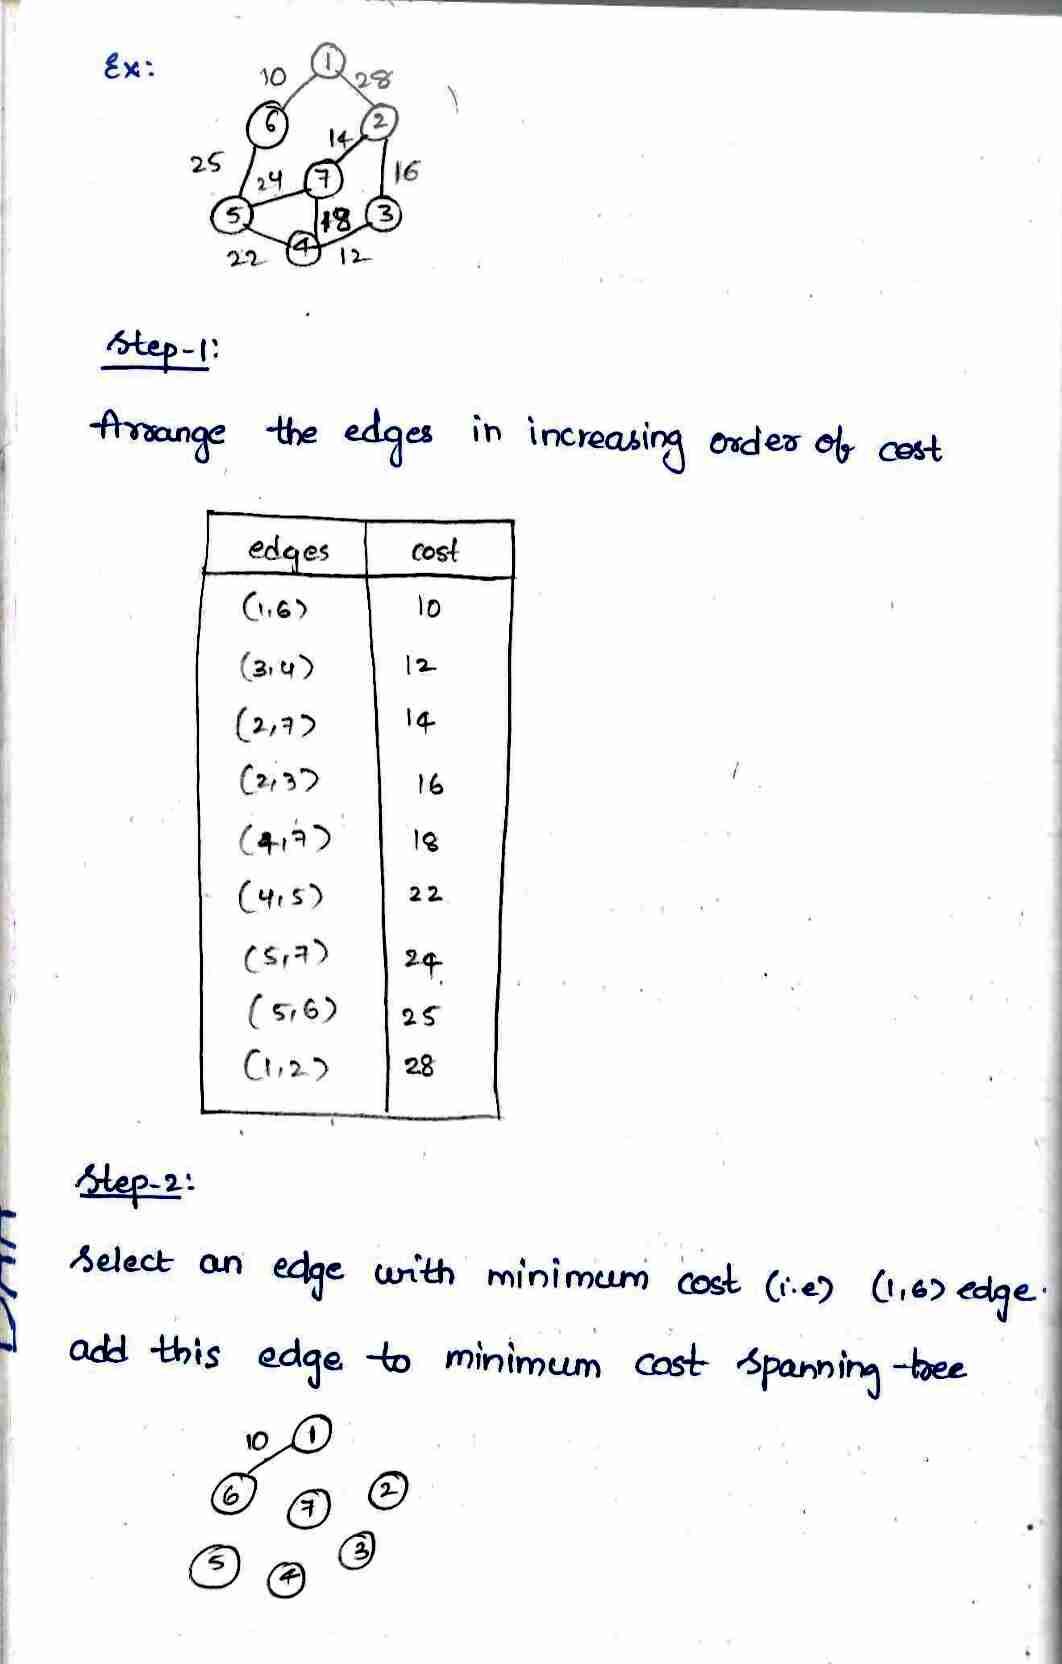 Ex:
1
10
28
6
2
14
25
16
24
7
5
18
3
4
22
12
Step-1:
Arrange the edges in increasing order of cost
edges cost
(1,6) 10
(3,4) 12
(2,7) 14
(2,3) 16
(4,7) 18
(4,5) 22
(5,7) 24
(5,6) 25
(1,2) 28
Step-2:
Select an edge with minimum cost (i.e) (1,6) edge.
add this edge to minimum cost spanning tree
10 1
6 7 2
5 4 3